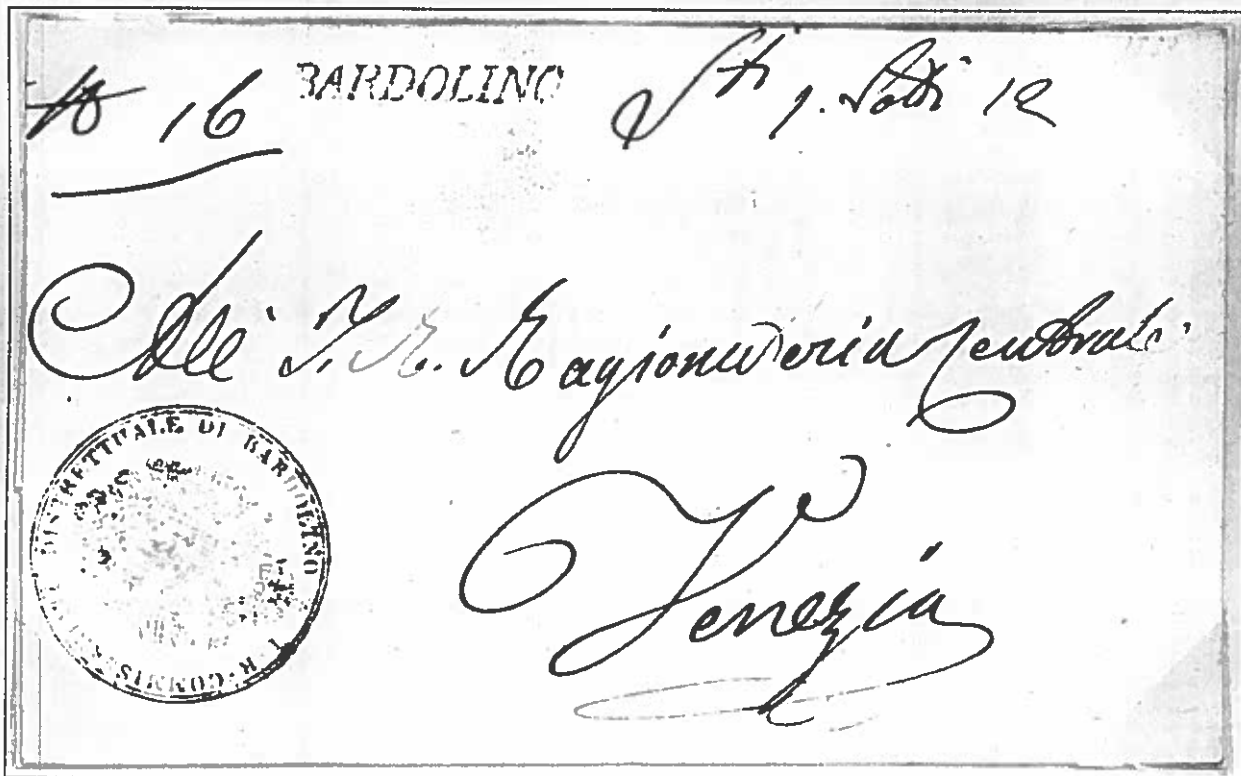 16 BARDOLINO
12
All' I. R. Ragionateria Centrale
Venezia
I. R. COMMISSARIATO DISTRETTUALE DI BARDOLINO